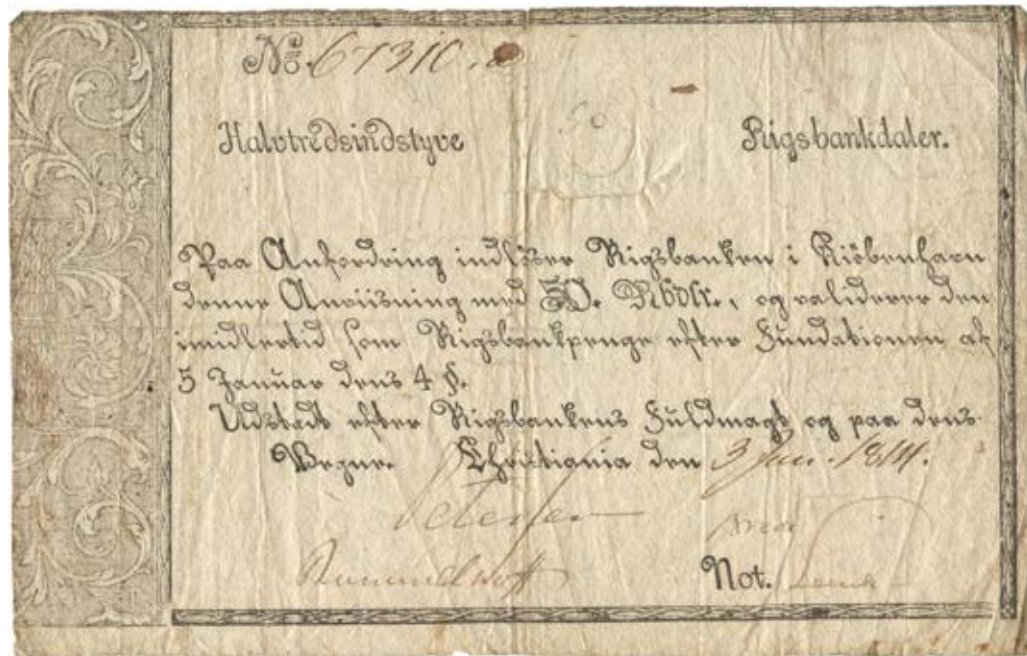 No. 67310.
50
Halvtredsindstyve Rigsbankdaler.
Paa Anfordring indløser Rigsbanken i Kiöbenhavn
denne Anviisning med 50. Rbdlr., og validerer den
imidlertid som Rigsbankpenge efter Fundationen af
5 Januar dens 4 §.
Udstedt efter Rigsbankens Fuldmagt og paa dens
Vegne. Christiania den 3 Jan. 1814.
Petersen
Rummelhoff Not.